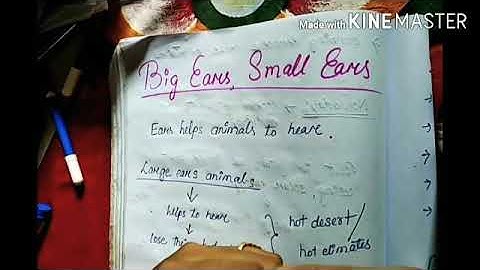 Made with KINEMASTER
Big Ears, Small Ears
Ears helps animals to hear.
Large ears animal
↓
helps to hear
↓
lose
hot desert/
hot climates